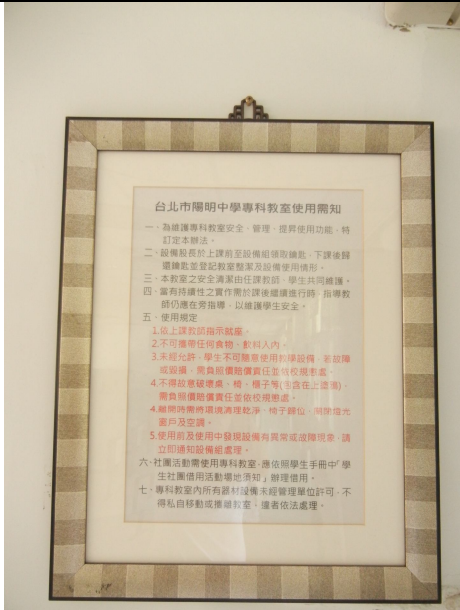 台北市陽明中學專科教室使用需知
一、為維護專科教室安全、管理、提昇使用功能，特
訂定本辦法。
二、設備股長於上課前至設備組領取鑰匙，下課後歸
還鑰匙並登記教室整潔及設備使用情形。
三、本教室之安全清潔由任課教師、學生共同維護。
四、當有持續性之實作需於課後繼續進行時，指導教
師仍應在旁指導，以維護學生安全。
五、使用規定
1.依上課教師指示就座。
2.不可攜帶任何食物、飲料入內。
3.未經允許，學生不可隨意使用教學設備，若故障
或毀損，需負照價賠償責任並依校規懲處。
4.不得故意破壞桌、椅、櫃子等(包含在上塗鴉)，
需負照價賠償責任並依校規懲處。
4.離開時需將環境清理乾淨、椅子歸位、關閉燈光
窗戶及空調。
5.使用前及使用中發現設備有異常或故障現象，請
立即通知設備組處理。
六、社團活動需使用專科教室，應依照學生手冊中「學
生社團借用活動場地須知」辦理借用。
七、專科教室內所有器材設備未經管理單位許可，不
得私自移動或攜離教室，違者依法處理。